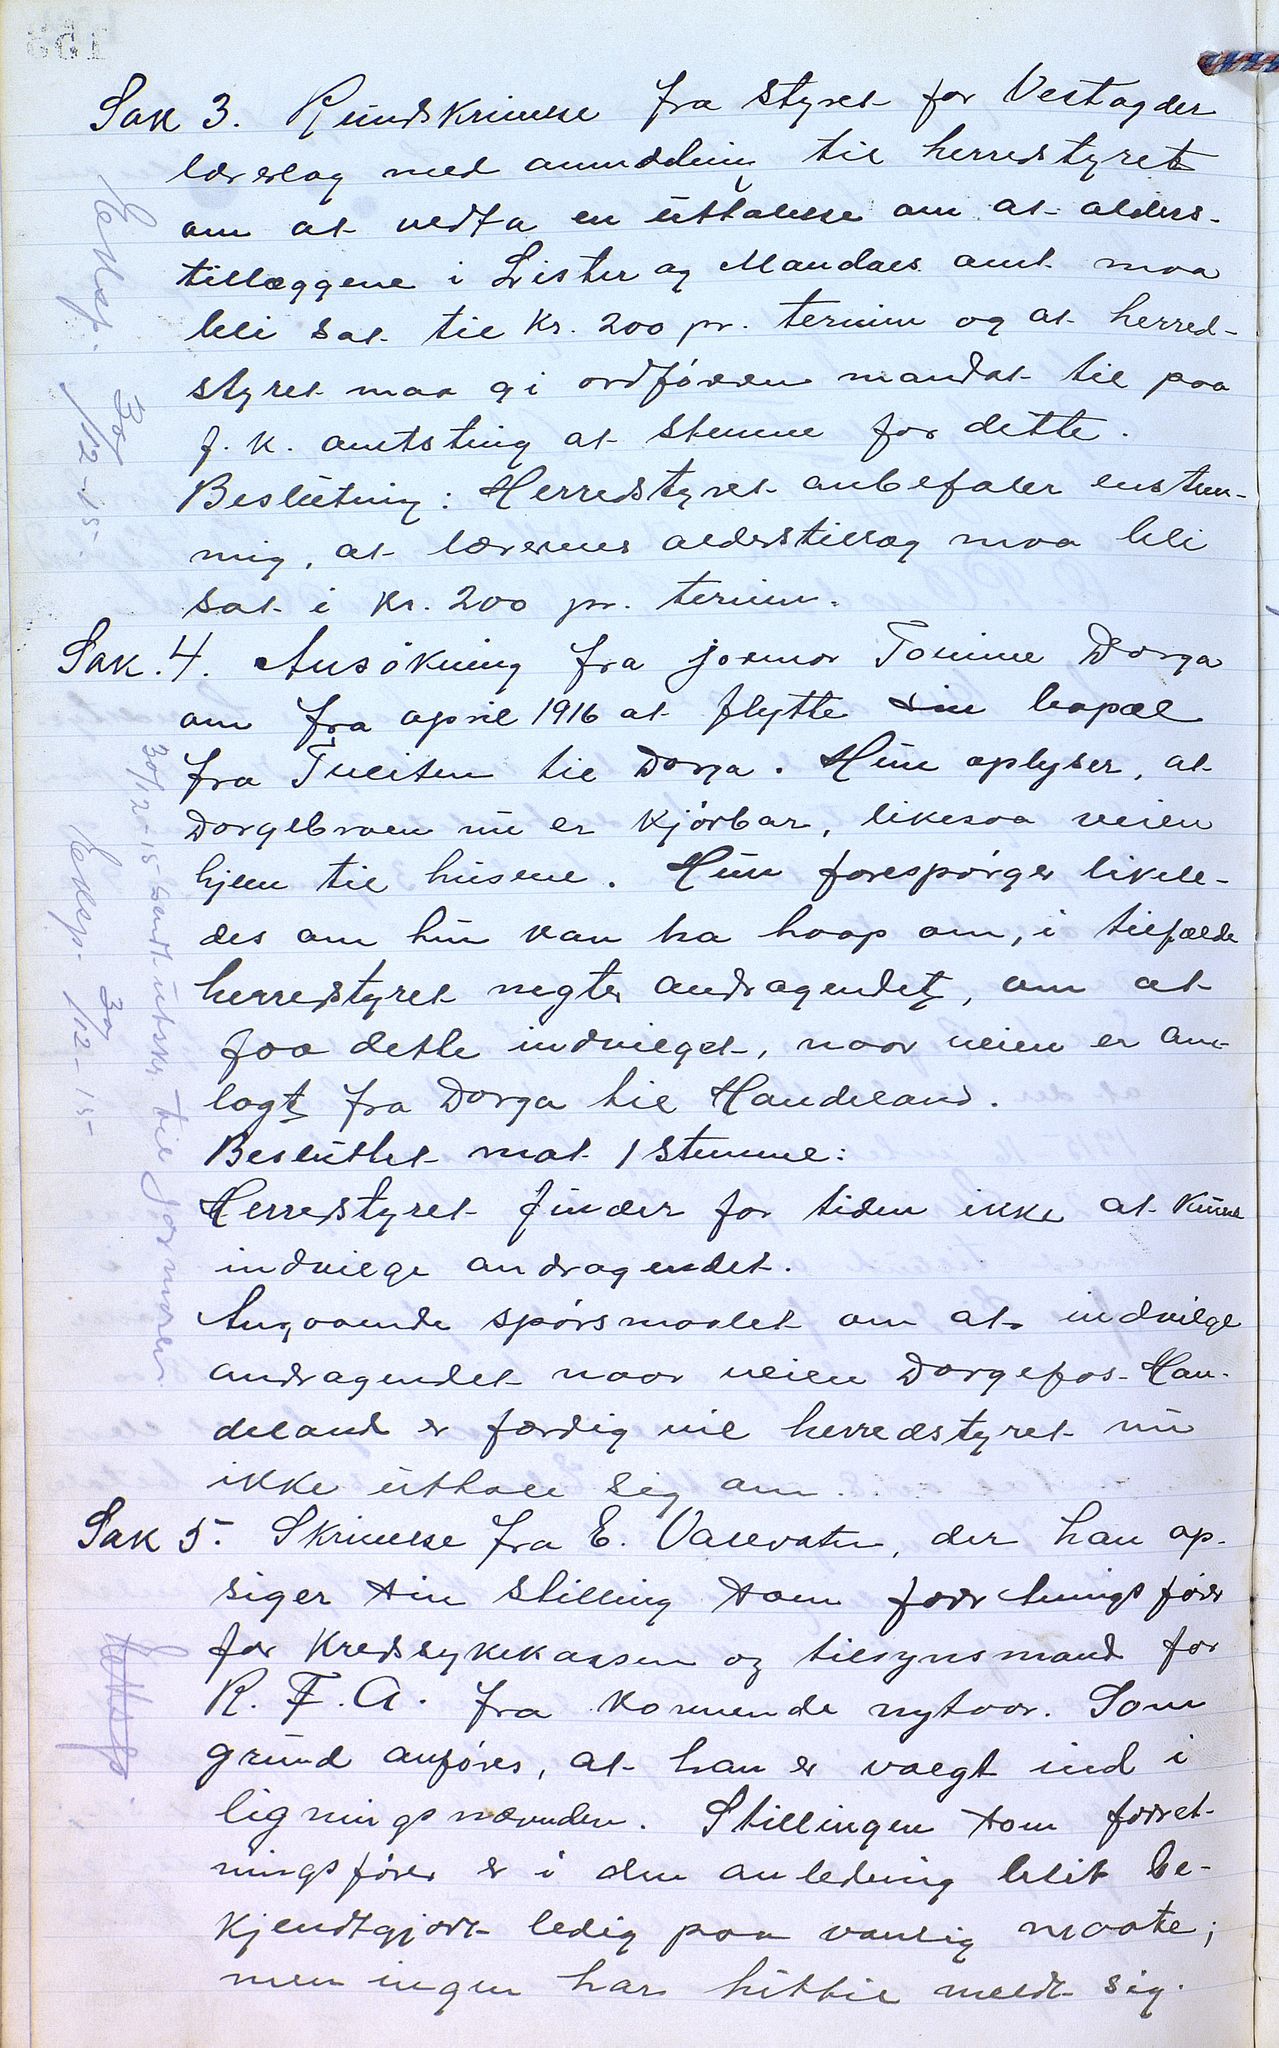 Sak 3. Rundskrivelse fra styret for Vestagder
lærerlag med anmodning til herredstyret
om at vedta en uttalelse om at alders-
tillæggene i Lister og Mandals amt maa
bli sat til kr. 200 pr. termin og at herred-
styret maa gi ordføreren mandat til paa
f. k. amtsting at stemme for dette.
Beslutning: Herredstyret anbefaler enstem-
mig, at lærernes alderstillæg maa bli
sat i kr. 200 pr. termin.
Eksp. 30/12-15.
Sak. 4. Ansökning fra jormor Tomine Dorga
om fra april 1916 at flytte sin bopæl
fra Tveiten til Dorga. Hun oplyser, at
Dorgebroen nu er kjörbar, likesaa veien
hjem til husene. Hun forespörger likele-
des om hun kan ha haap om, i tilfælde
herredstyret negter andragendet, om at
faa dette indvilget, naar veien er an-
lagt fra Dorga til Handeland.
Besluttet mot 1 stemme:
Herredstyret finder for tiden ikke at kunne
indvilge andragendet.
Angaaende spörsmaalet om at indvilge
andragendet naar veien Dorgefos-Han-
deland er færdig vil herredstyret nu
ikke uttale sig om.
30/12-15 sendt utskr. til jormoren
Eksp. 30/12-15-
Sak 5. Skrivelse fra E. Vasevatn, der han op-
siger sin stilling som forretningsförer
for Kredssykekassen og tilsynsmand for
R. F. A. fra kommende nytaar. Som
grund anföres, at han er valgt ind i
ligningsnævnden. Stillingen som forret-
ningsförer er i den anledning blit be-
kjendtgjort ledig paa vanlig maate;
men ingen har hittil meldt sig.